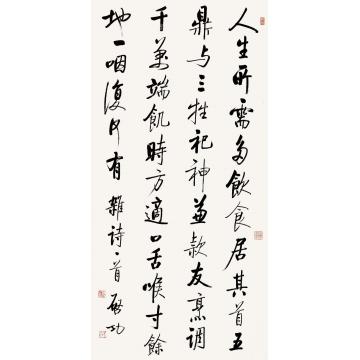 人生所需多飲食居其首五
鼎与三牲祀神兼款友烹调
千萬端飢時方適口舌喉寸餘
地一咽復何有 雜诗一首 啓功